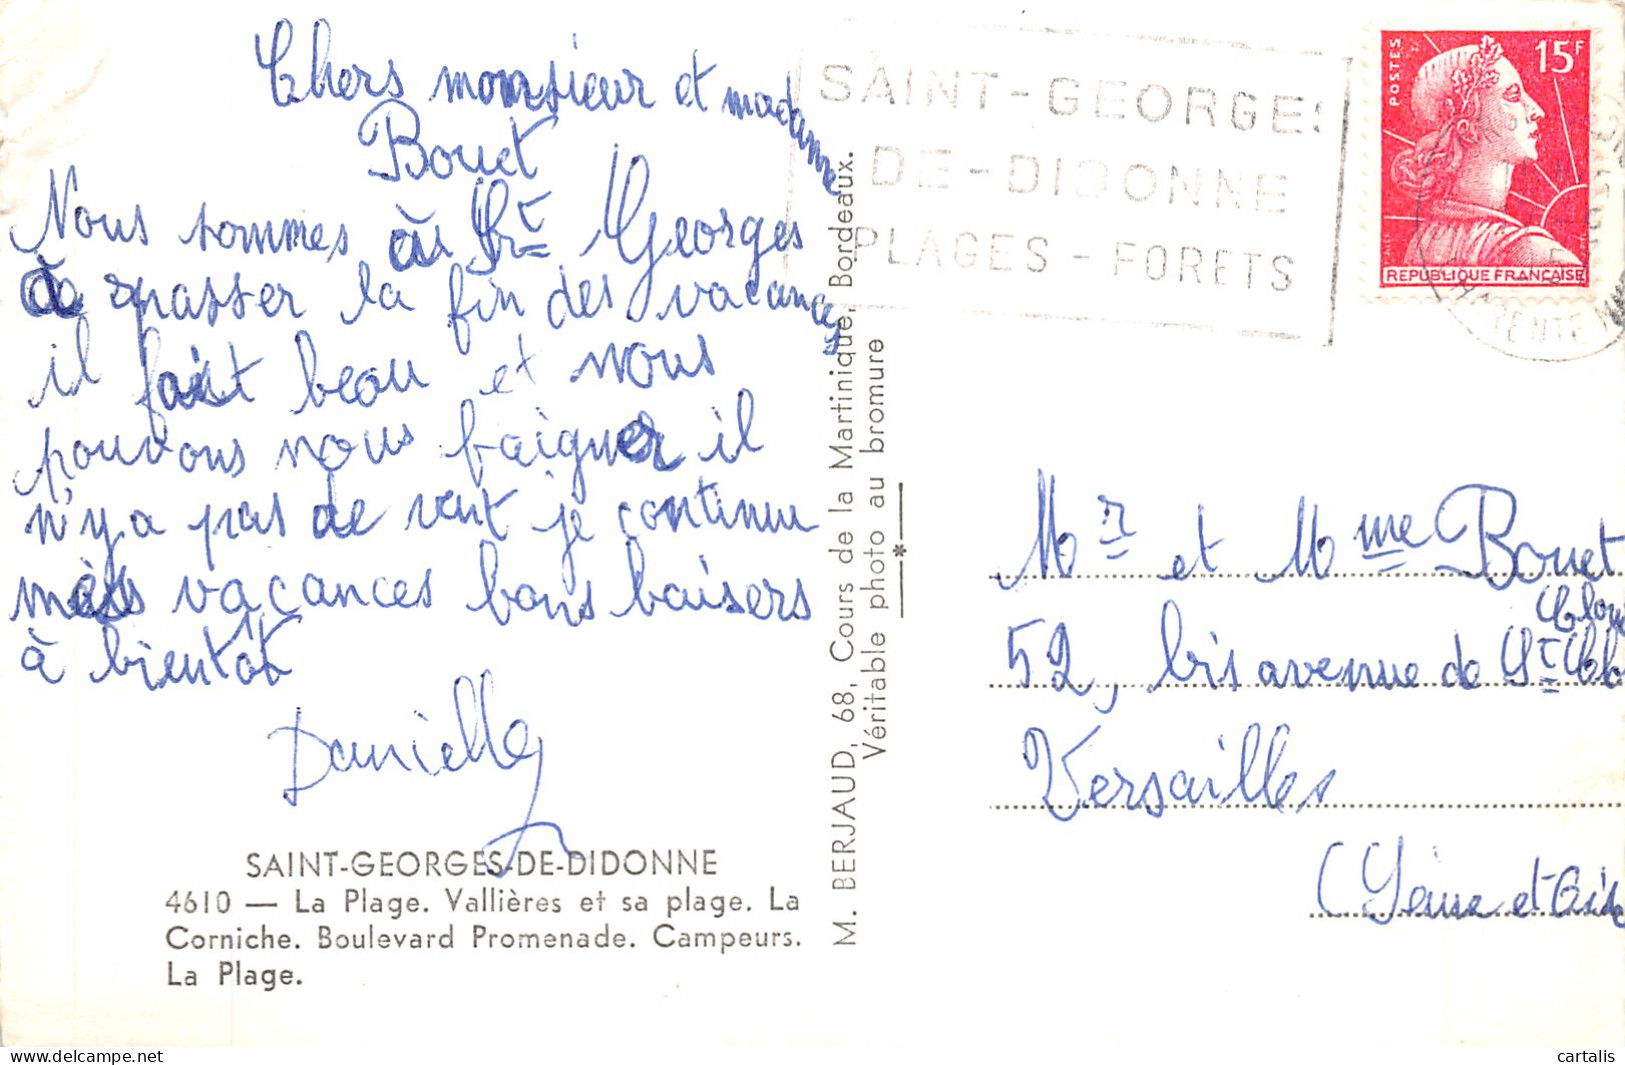 Chers monsieur et madame
Bouet
Nous sommes à St Georges
passer la fin des vacances
il fait beau et nous
pouvons nous baigner il
n'y a pas de vent je continu
mes vacances bons baisers
à bientôt
Danielle
SAINT-GEORGES-DE-DIDONNE
4610 — La Plage. Vallières et sa plage. La
Corniche. Boulevard Promenade. Campeurs.
La Plage.
M. BERJAUD, 68, Cours de la Martinique, Bordeaux.
Véritable photo au bromure
SAINT-GEORGES
DE-DIDONNE
PLAGES - FORETS
POSTES
15F
REPUBLIQUE FRANÇAISE
CHARENTE
Mr et Mme Bouet
52, bis avenue de St
Cloud
Versailles
(Seine et Oise
cartalis
delcampe.net